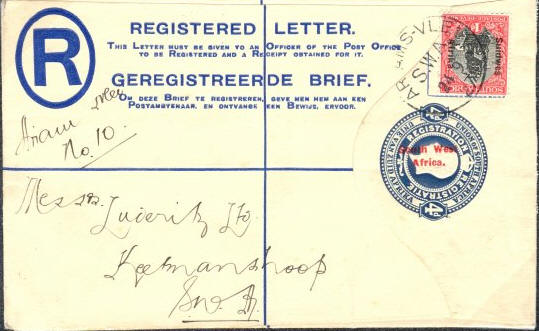 R
REGISTERED LETTER.
THIS LETTER MUST BE GIVEN TO AN OFFICER OF THE POST OFFICE
TO BE REGISTERED AND A RECEIPT OBTAINED FOR IT.
GEREGISTREERDE BRIEF.
OM DEZE BRIEF TE REGISTREREN, GEVE MEN HEM AAN EEN
POSTAMBTENAAR, EN ONTVANGE EEN BEWIJS, ERVOOR.
ARIAMS-VLEI
SWA
Ariam vlei
No. 10.
4D
REGISTRATION
South West
Africa.
REGISTRATIE
4D
Messrs. Luderitz Ltd
Keetmanshoop
S.W.A.